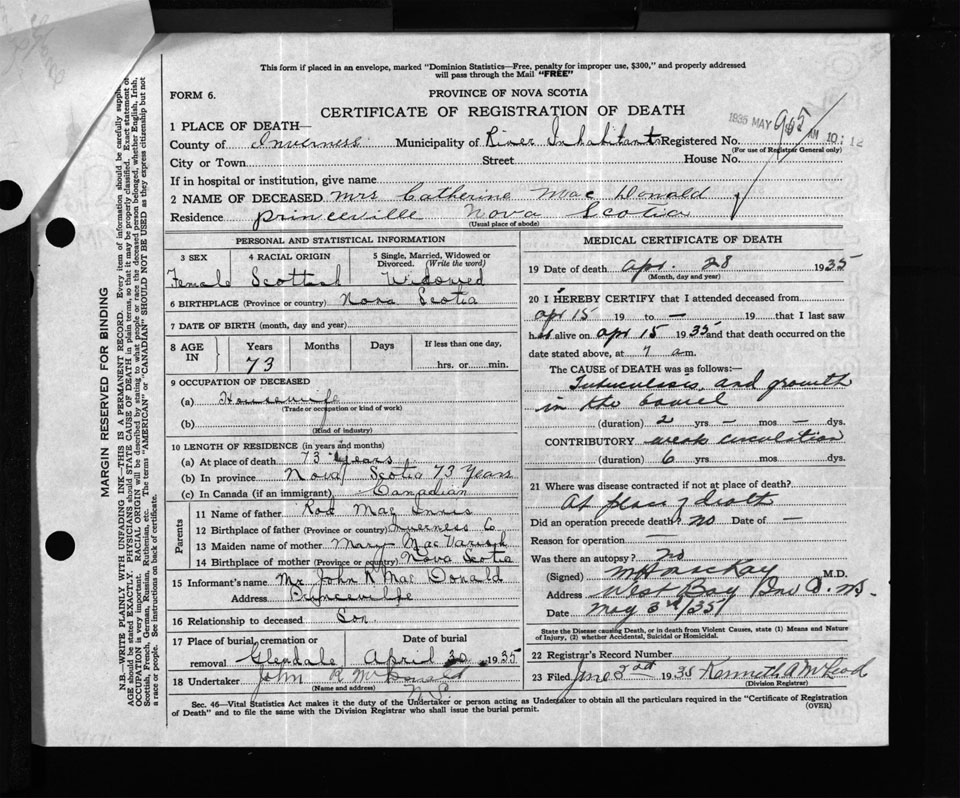 This form if placed in an envelope, marked "Dominion Statistics—Free, penalty for improper use, $300," and properly addressed
will pass through the Mail "FREE"
FORM 6.
PROVINCE OF NOVA SCOTIA
CERTIFICATE OF REGISTRATION OF DEATH
1935 MAY AM 10 12
905
1 PLACE OF DEATH—
County of Inverness Municipality of River Inhabitants Registered No.
(For use of Registrar General only)
City or Town Street House No.
If in hospital or institution, give name
2 NAME OF DECEASED Mrs Catherine Mac Donald
Residence Princeville Nova Scotia
(Usual place of abode)
PERSONAL AND STATISTICAL INFORMATION
3 SEX 4 RACIAL ORIGIN 5 Single, Married, Widowed or
Divorced. (Write the word)
Female Scottish Widowed
6 BIRTHPLACE (Province or country) Nova Scotia
7 DATE OF BIRTH (month, day and year)
8 AGE IN Years Months Days If less than one day,
73 hrs. or min.
9 OCCUPATION OF DECEASED
(a) Housewife
(Trade or occupation or kind of work)
(b)
(Kind of industry)
10 LENGTH OF RESIDENCE (in years and months)
(a) At place of death 73 Years
(b) In province Nova Scotia 73 Years
(c) In Canada (if an immigrant) Canadian
Parents
11 Name of father Rod Mac Innis
12 Birthplace of father (Province or country) Inverness Co
13 Maiden name of mother Mary Mac Varish
14 Birthplace of mother (Province or country) Nova Scotia
15 Informant's name Mr John R Mac Donald
Address Princeville
16 Relationship to deceased Son
17 Place of burial, cremation or Date of burial
removal Glendale April 30 1935
18 Undertaker John R McDonald
(Name and address) N.S.
MEDICAL CERTIFICATE OF DEATH
19 Date of death Apr. 28 1935
(Month, day and year)
20 I HEREBY CERTIFY that I attended deceased from
Apr 15 19 to — 19 that I last saw
her alive on Apr 15 1935 and that death occurred on the
date stated above, at 7 am.
The CAUSE of DEATH was as follows:—
Tuberculosis, and growth
in the bowel
(duration) 2 yrs. — mos. — dys.
CONTRIBUTORY weak circulation
(duration) 6 yrs. mos. dys.
21 Where was disease contracted if not at place of death?
At place of death
Did an operation precede death? no Date of —
Reason for operation —
Was there an autopsy? no
(Signed) MacKay M.D.
Address West Bay
Date May 3rd/35
State the Disease causing Death, or in death from Violent Causes, state (1) Means and Nature
of Injury, (2) whether Accidental, Suicidal or Homicidal.
22 Registrar's Record Number
23 Filed June 3rd 1935 Kenneth A McLeod
(Division Registrar)
Sec. 46—Vital Statistics Act makes it the duty of the Undertaker or person acting as Undertaker to obtain all the particulars required in the "Certificate of Registration
of Death" and to file the same with the Division Registrar who shall issue the burial permit. (OVER)
MARGIN RESERVED FOR BINDING
N.B.—WRITE PLAINLY WITH UNFADING INK—THIS IS A PERMANENT RECORD. Every item of information should be carefully
AGE should be stated EXACTLY. PHYSICIANS should STATE CAUSE OF DEATH in plain terms, so that it may be properly classified. Exact statement of
OCCUPATION is very important. RACIAL ORIGIN will be described by stating to what people or race the deceased person belonged, whether English, Irish,
Scottish, French, German, Russian, Ruthenian, etc. The terms "AMERICAN" or "CANADIAN" SHOULD NOT BE USED as they express citizenship but not
a race or people. See instructions on back of certificate.